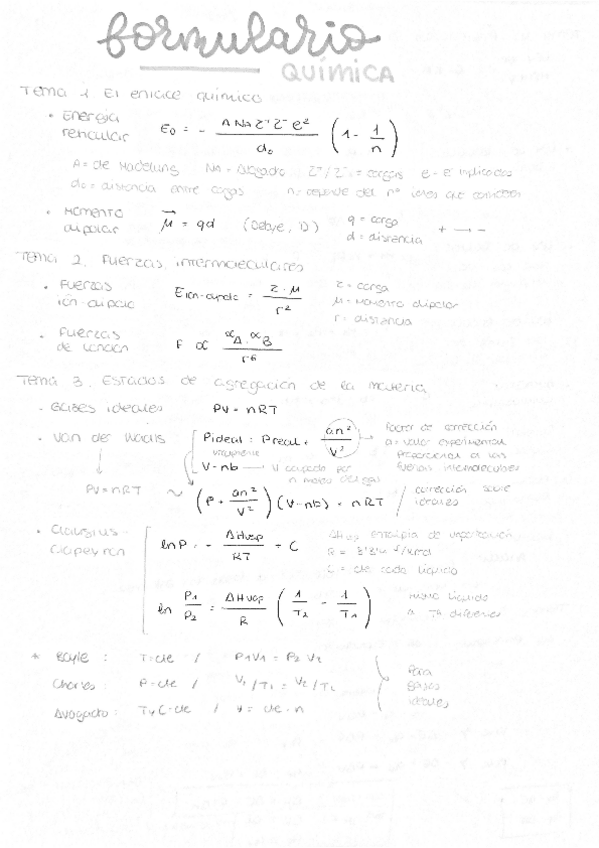 formulario
QUÍMICA
TEMA 1 El enlace químico
• Energía reticular E₀ = - A Na Z⁺ Z⁻ e² / d₀ (1 - 1/n)
A = de Madelung Na = Avogadro Z⁺/Z⁻ = cargas e = e⁻ implicados
d₀ = distancia entre cargas n = depende del nº iones que
• Momento dipolar μ = qd (Debye, D) q = carga + → -
d = distancia
TEMA 2. Fuerzas intermoleculares
• Fuerzas ión-dipolo E ión-dipolo = z · μ / r² z = carga
μ = momento dipolar
r = distancia
• Fuerzas de London F ∝ ∝A · ∝B / r⁶
TEMA 3. Estados de agregación de la materia
. Gases ideales PV = nRT
. Van der Waals Pideal = Preal + an²/V² factor de corrección
a = valor experimental
proporcional a las
fuerzas intermoleculares
V - nb → V ocupado por
n moles del gas
PV = nRT ~ (P + an²/V²) (V - nb) = nRT / corrección sobre ideales
• Clausius-Clapeyron ln P = - ΔHvap / RT + C ΔHvap entalpía de vaporización
R = 8'314 J/Kmol
C = cte de cada líquido
ln P₁/P₂ = ΔHvap / R (1/T₂ - 1/T₁) mismo líquido
a Tª diferentes
* Boyle : T = cte / P₁V₁ = P₂V₂
Charles : P = cte / V₁/T₁ = V₂/T₂
Avogadro : T y = cte / V = cte · n
Para gases ideales